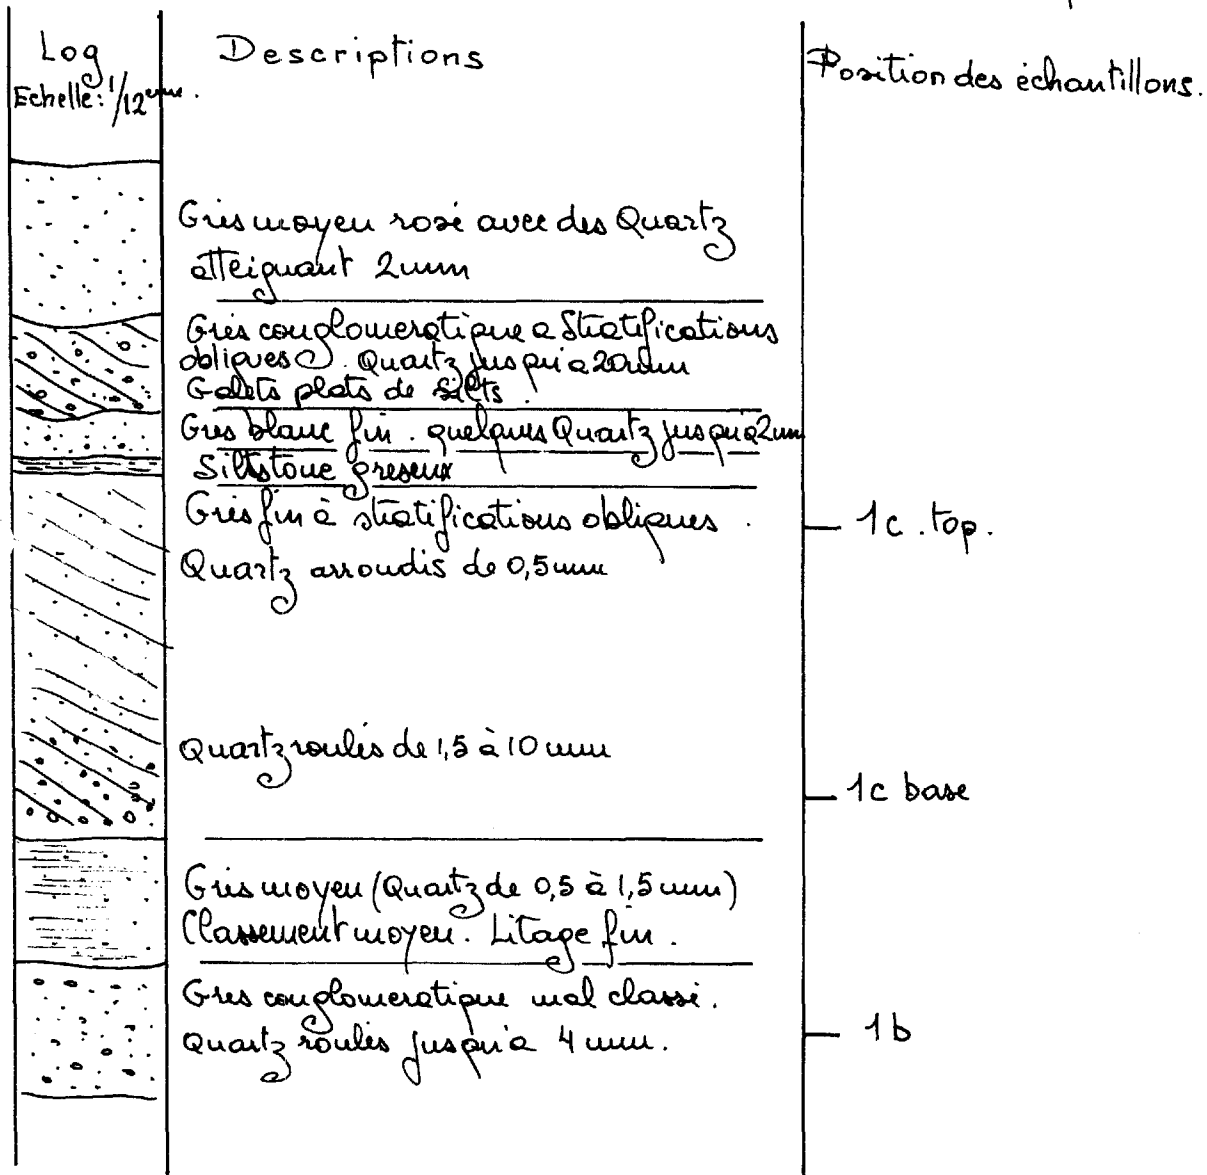 Log
Echelle: 1/12ème.
Descriptions
Position des échantillons.
Grès moyen rosé avec des Quartz
atteignant 2mm
Grès conglomeratique a Stratifications
obliques. Quartz jusqu'a 20mm
Galets plats de silts.
Gres blanc fin. quelques Quartz jusqu'a 2mm
Siltstone greseux
Grès fin à stratifications obliques.
Quartz arrondis de 0,5mm
1c. top.
Quartz roulés de 1,5 à 10mm
1c base
Grès moyen (Quartz de 0,5 à 1,5mm)
Classement moyen. Litage fin.
Gres conglomeratique mal classé.
Quartz roulés jusqu'a 4mm.
1b